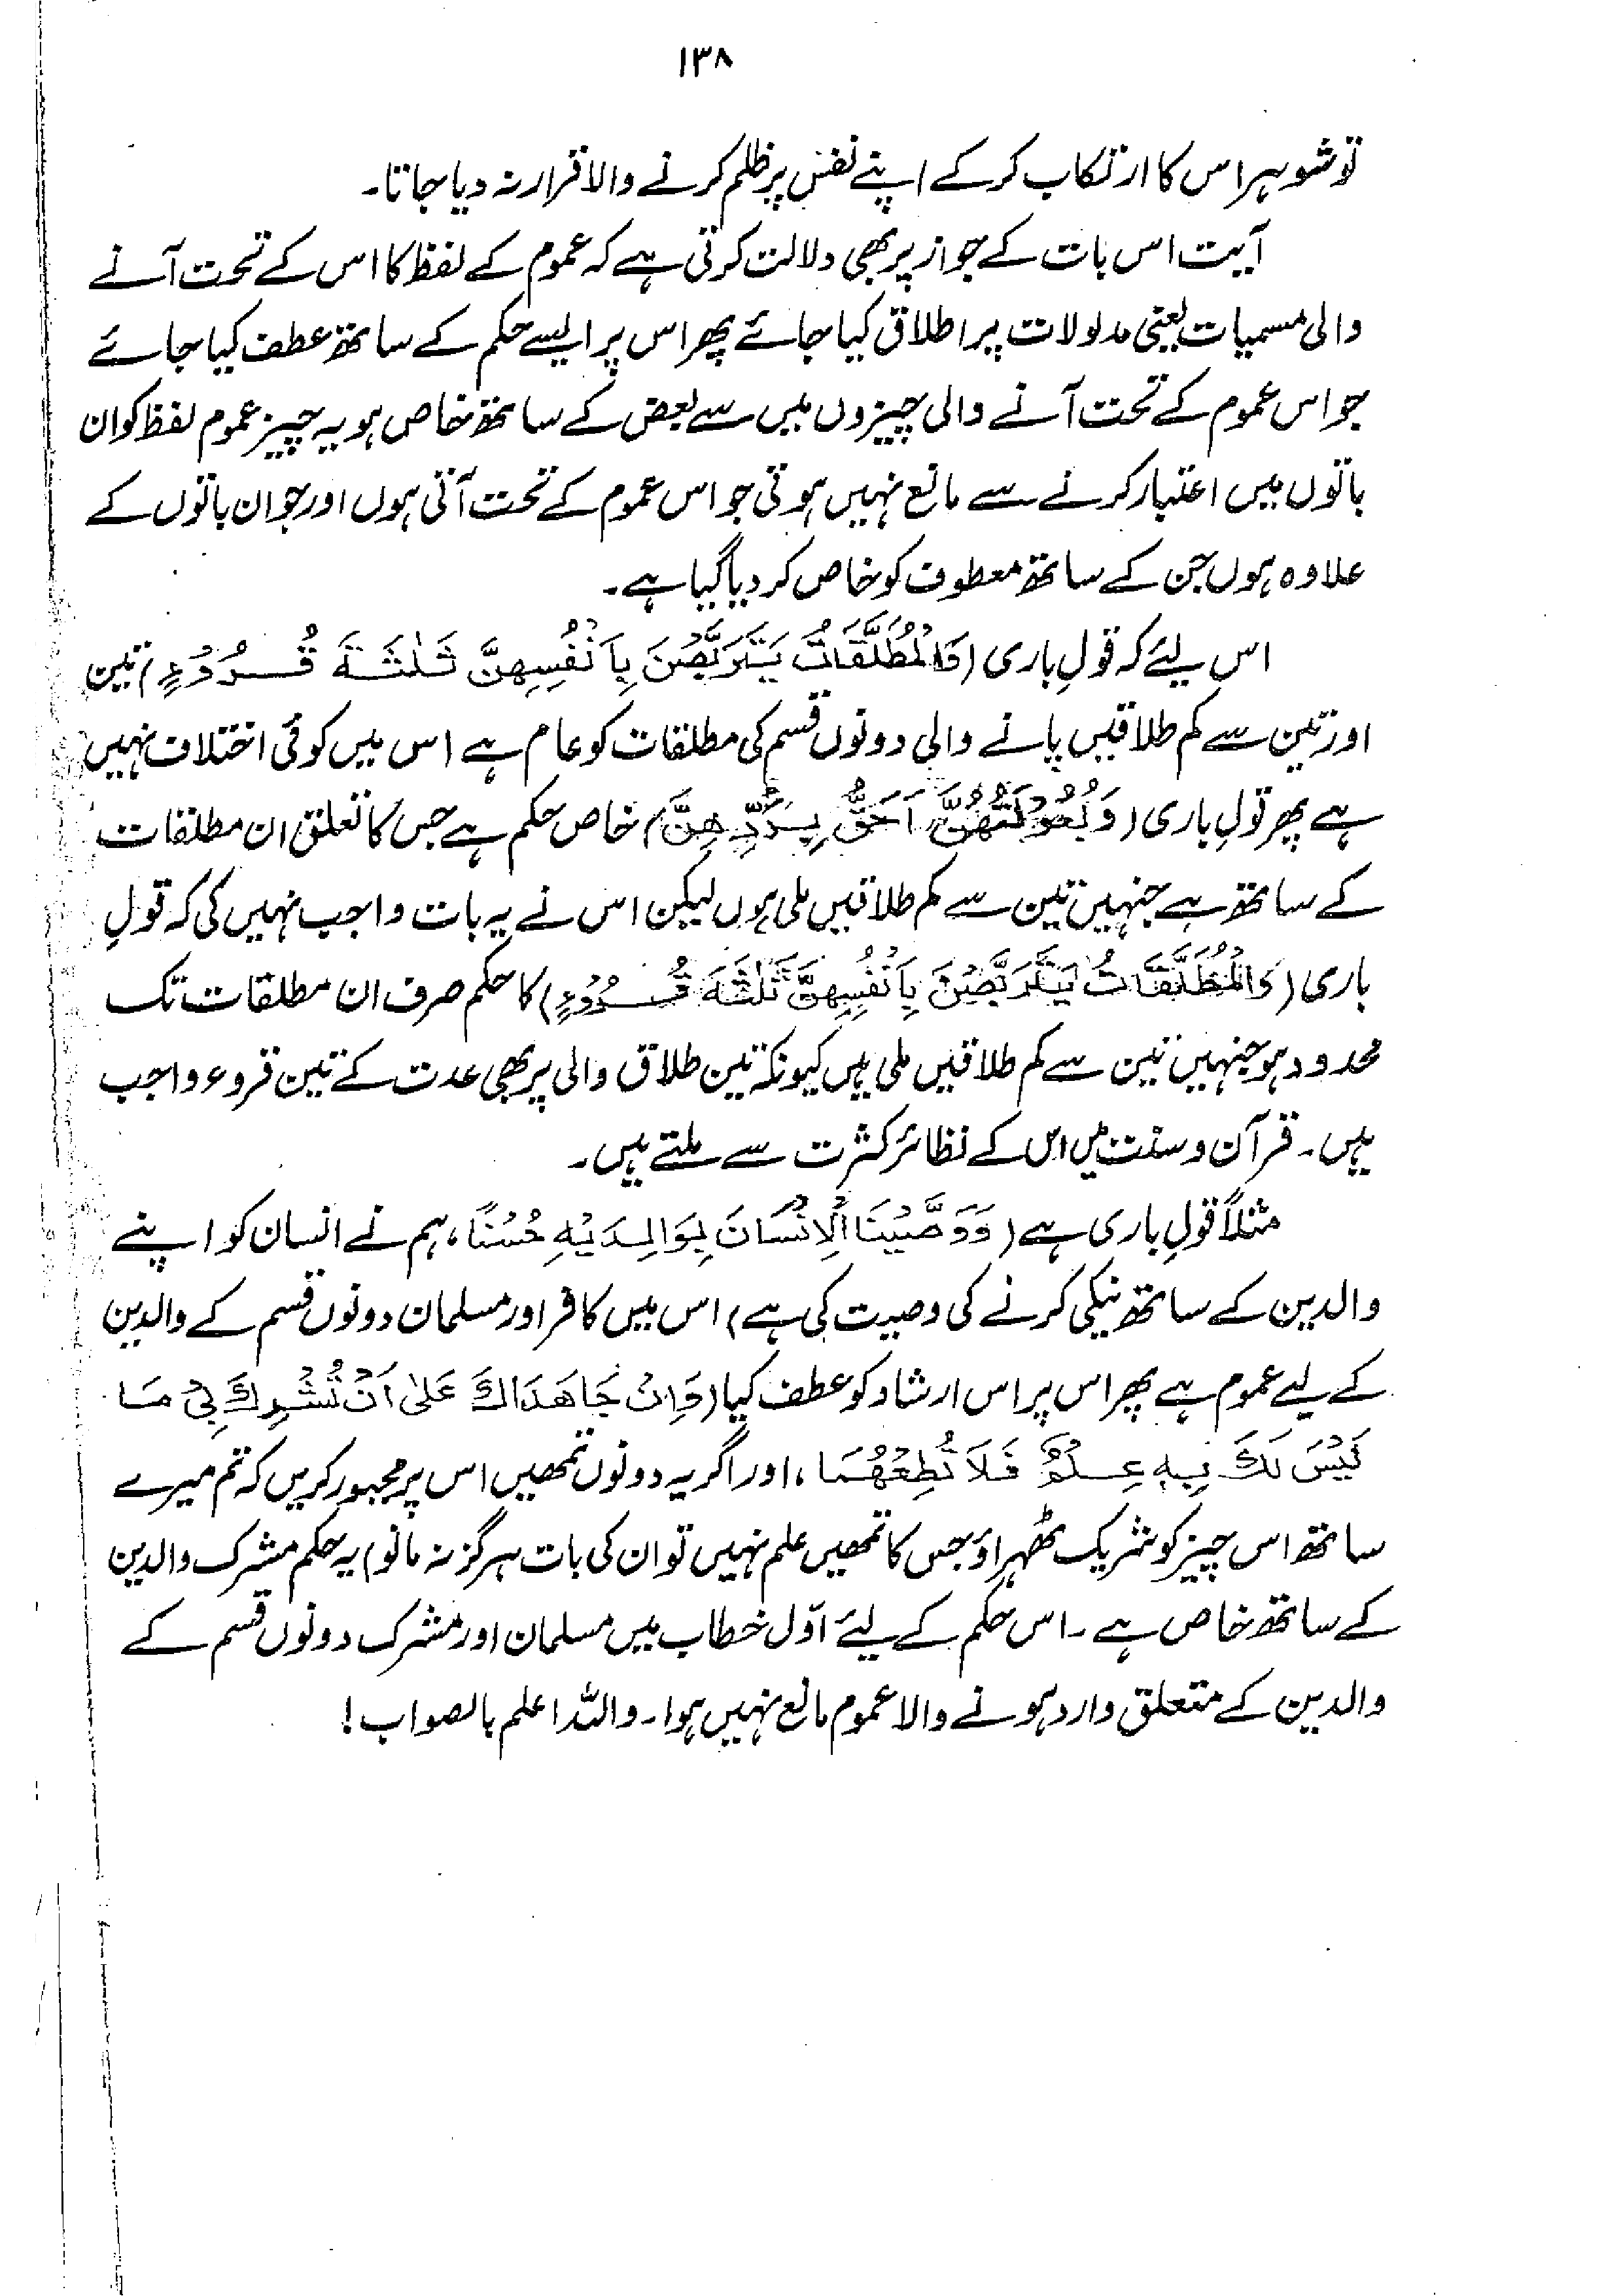 ۱۳۸
تو شوہر اس کا ارتکاب کر کے اپنے نفس پر ظلم کرنے والا قرار نہ دیا جاتا۔
آیت اس بات کے جواز پر بھی دلالت کرتی ہے کہ عموم کے لفظ کا اس کے تحت آنے
والی مسمیات یعنی مدلولات پر اطلاق کیا جائے پھر اس پر ایسے حکم کے ساتھ عطف کیا جائے
جو اس عموم کے تحت آنے والی چیزوں میں سے بعض کے ساتھ خاص ہو یہ چیز عموم لفظ کو ان
باتوں میں اعتبار کرنے سے مانع نہیں ہوتی جو اس عموم کے تحت آتی ہوں اور جو ان باتوں کے
علاوہ ہوں جن کے ساتھ معطوف کو خاص کر دیا گیا ہے۔
اس لیئے کہ قولِ باری (وَالْمُطَلَّقَاتُ یَتَرَبَّصْنَ بِاَنْفُسِهِنَّ ثَلٰثَةَ قُرُوْءٍ) تین
اور تین سے کم طلاقیں پانے والی دونوں قسم کی مطلقات کو عام ہے اس میں کوئی اختلاف نہیں
ہے پھر قولِ باری (وَبُعُوْلَتُهُنَّ اَحَقُّ بِرَدِّهِنَّ) خاص حکم ہے جس کا تعلق ان مطلقات
کے ساتھ ہے جنہیں تین سے کم طلاقیں ملی ہوں لیکن اس نے یہ بات واجب نہیں کی کہ قولِ
باری (وَالْمُطَلَّقَاتُ یَتَرَبَّصْنَ بِاَنْفُسِهِنَّ ثَلٰثَةَ قُرُوْءٍ) کا حکم صرف ان مطلقات تک
محدود ہو جنہیں تین سے کم طلاقیں ملی ہیں کیونکہ تین طلاق والی پر بھی عدت کے تین قروء واجب
ہیں۔ قرآن و سنت میں اس کے نظائر کثرت سے ملتے ہیں۔
مثلاً قولِ باری ہے (وَوَصَّیْنَا الْاِنْسَانَ بِوَالِدَیْهِ حُسْنًا، ہم نے انسان کو اپنے
والدین کے ساتھ نیکی کرنے کی وصیت کی ہے) اس میں کافر اور مسلمان دونوں قسم کے والدین
کے لیے عموم ہے پھر اس پر اس ارشاد کو عطف کیا (وَاِنْ جَاهَدَاكَ عَلٰی اَنْ تُشْرِكَ بِیْ مَا
لَیْسَ لَكَ بِهٖ عِلْمٌ فَلَا تُطِعْهُمَا، اور اگر یہ دونوں تمھیں اس پر مجبور کریں کہ تم میرے
ساتھ اس چیز کو شریک ٹھہراؤ جس کا تمھیں علم نہیں تو ان کی بات ہرگز نہ مانو) یہ حکم مشرک والدین
کے ساتھ خاص ہے۔ اس حکم کے لیئے اوّل خطاب میں مسلمان اور مشرک دونوں قسم کے
والدین کے متعلق وارد ہونے والا عموم مانع نہیں ہوا۔ واللہ اعلم بالصواب!